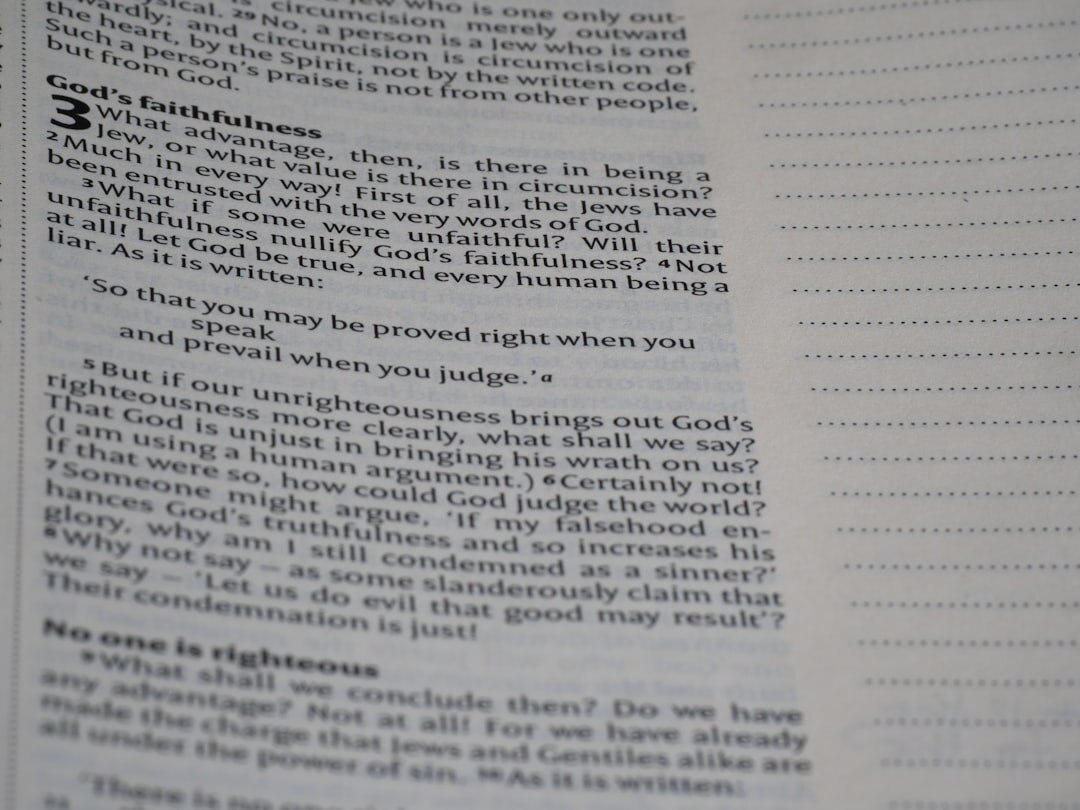 circumcision merely outward
sical. ²⁹ No, a person is a Jew who is one only out-
wardly; and circumcision is circumcision of
the heart, by the Spirit, not by the written code.
Such a person's praise is not from other people,
but from God.
God's faithfulness
3 What advantage, then, is there in being a
Jew, or what value is there in circumcision?
² Much in every way! First of all, the Jews have
been entrusted with the very words of God.
³ What if some were unfaithful? Will their
unfaithfulness nullify God's faithfulness? ⁴ Not
at all! Let God be true, and every human being a
liar. As it is written:
'So that you may be proved right when you
speak
and prevail when you judge.'ᵃ
⁵ But if our unrighteousness brings out God's
righteousness more clearly, what shall we say?
That God is unjust in bringing his wrath on us?
(I am using a human argument.) ⁶ Certainly not!
If that were so, how could God judge the world?
⁷ Someone might argue, 'If my falsehood en-
hances God's truthfulness and so increases his
glory, why am I still condemned as a sinner?'
⁸ Why not say – as some slanderously claim that
we say – 'Let us do evil that good may result'?
Their condemnation is just!
No one is righteous
⁹ What shall we conclude then? Do we have
any advantage? Not at all! For we have already
made the charge that Jews and Gentiles alike are
all under the power of sin. ¹⁰ As it is written:
'There is no one